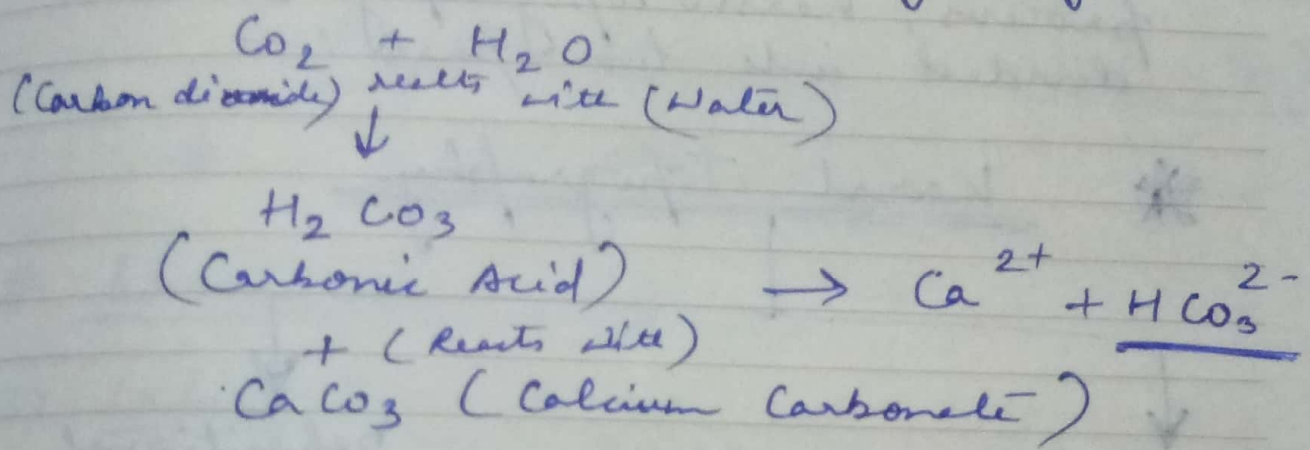 Co₂ + H₂O
(Carbon dioxide) reacts with (Water)
↓
H₂ Co₃
(Carbonic Acid) → Ca²⁺ + HCo₃²⁻
+ (Reacts with)
CaCo₃ (Calcium Carbonate)